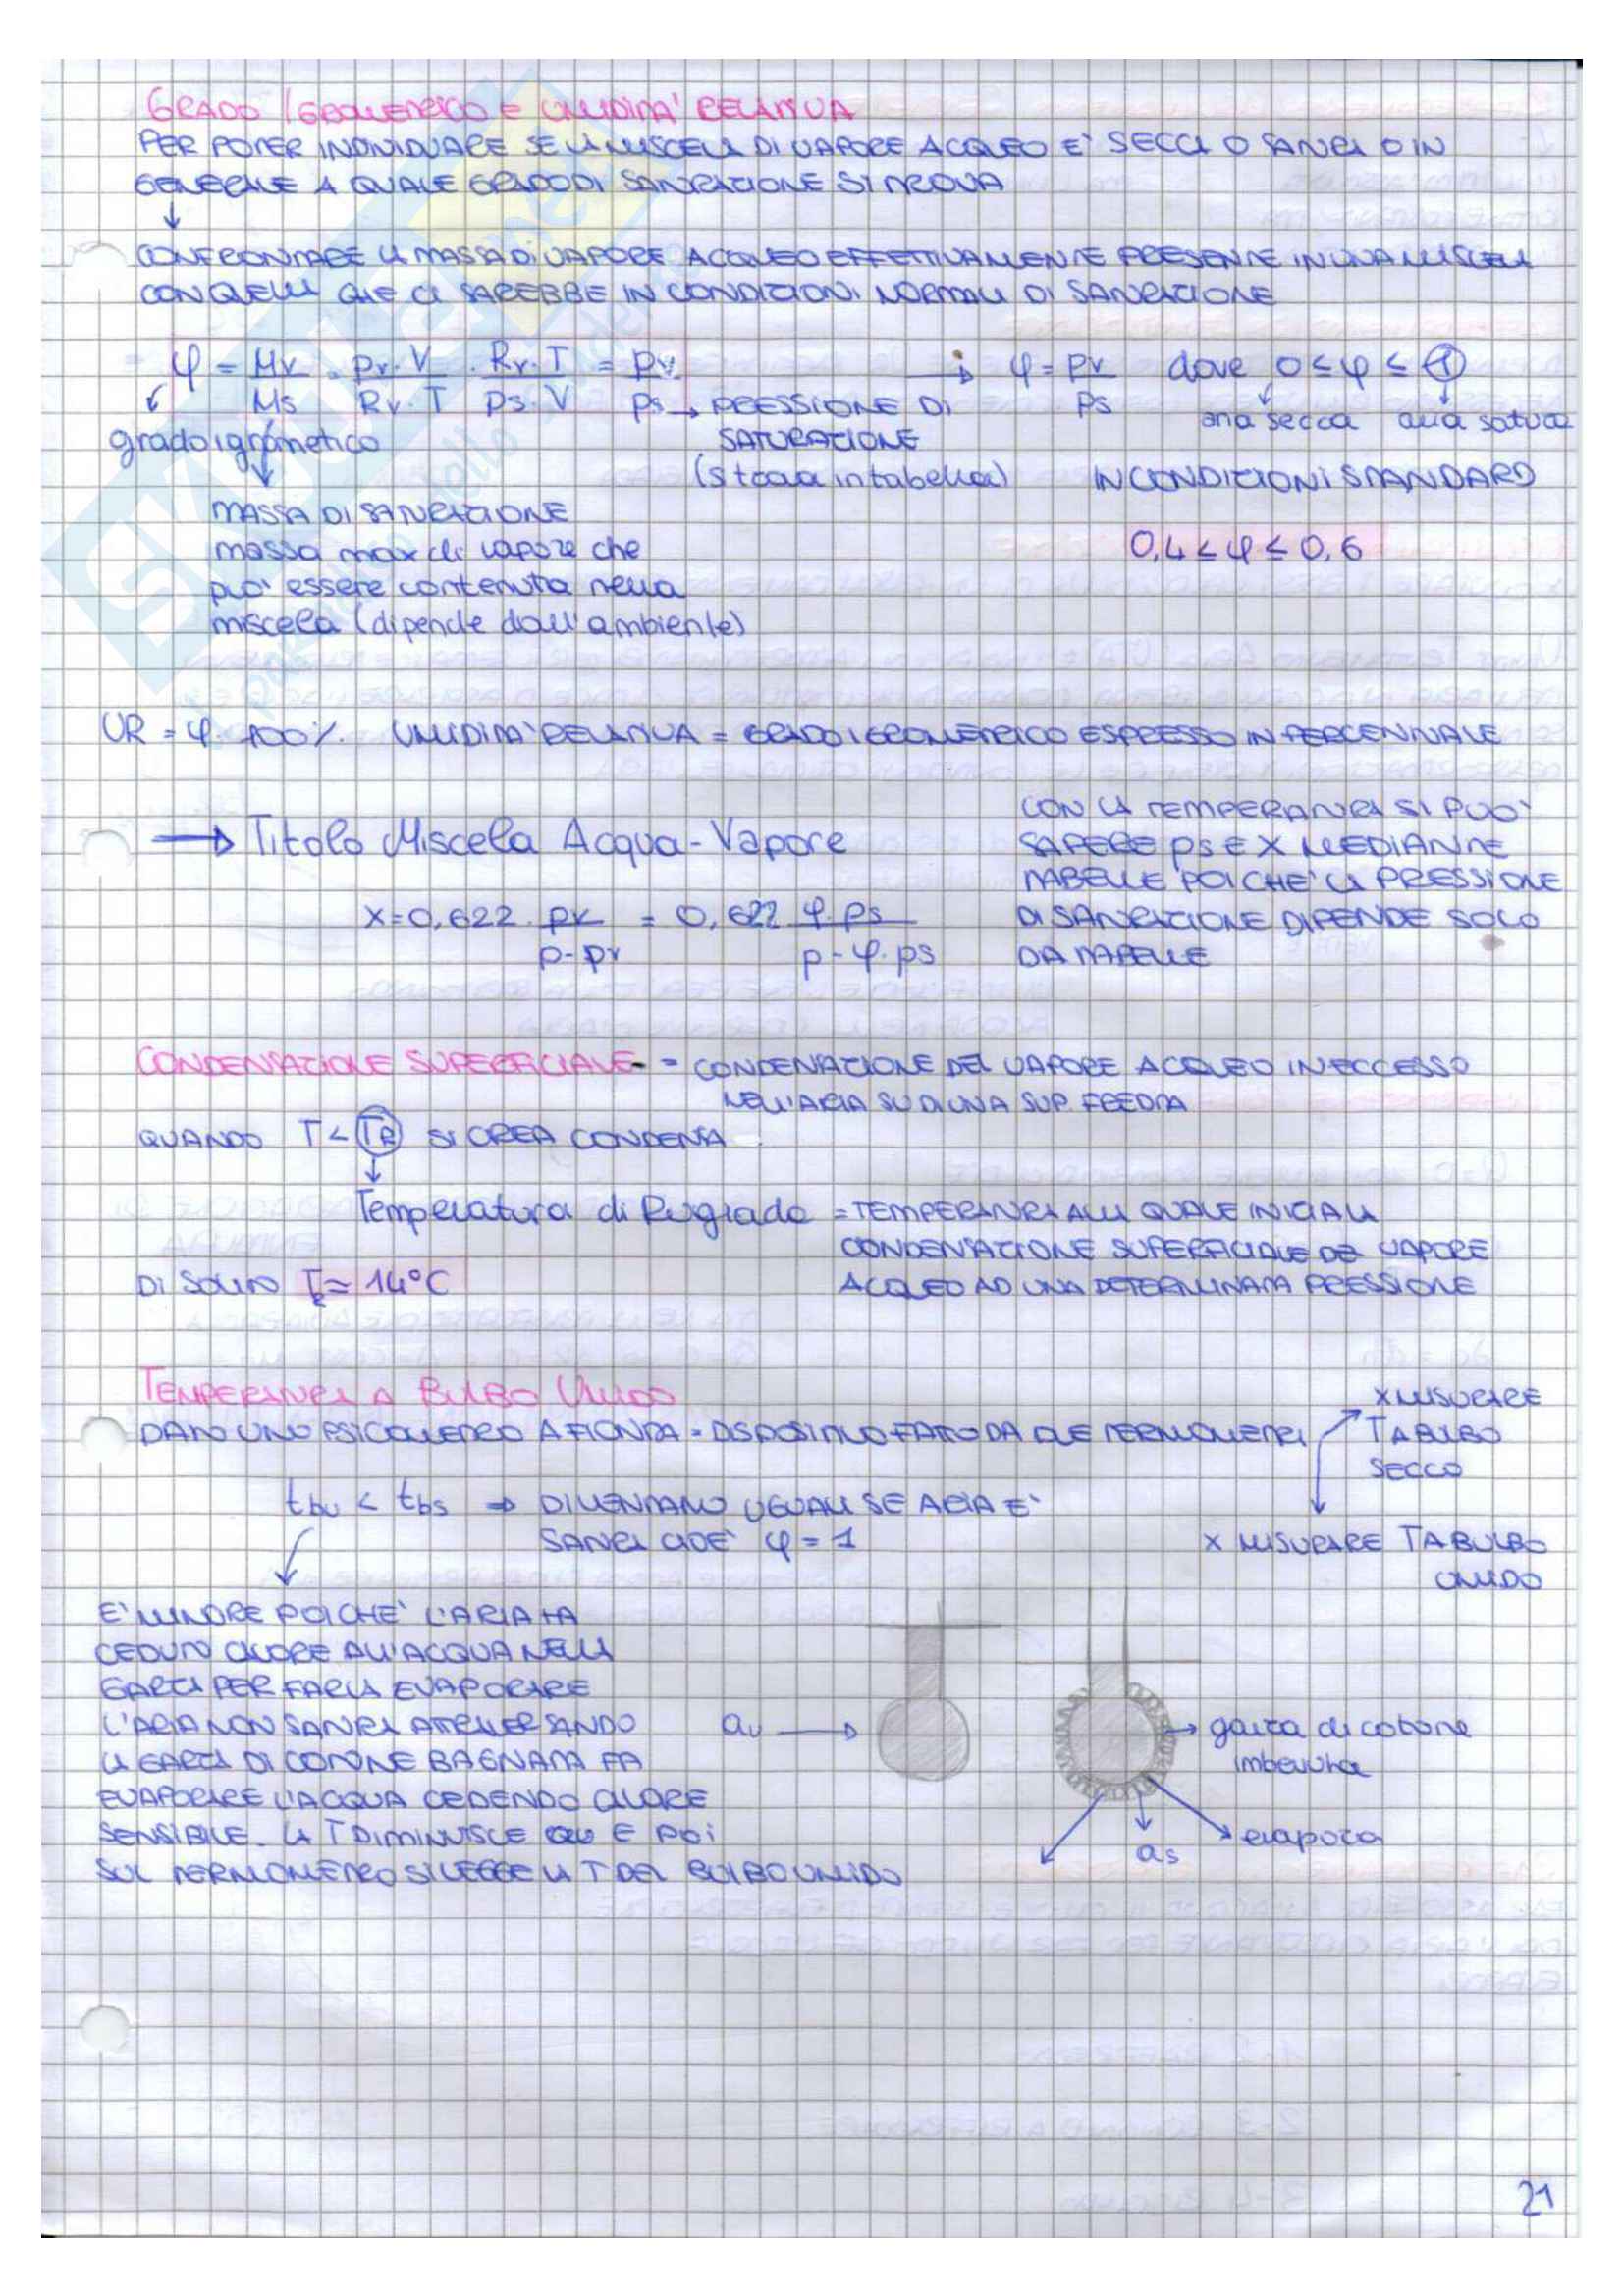 GRADO IGROMETRICO E UMIDITA' RELATIVA
PER POTER INDIVIDUARE SE LA MISCELA DI VAPORE ACQUEO E' SECCA O SATURA O IN
GENERALE A QUALE GRADO DI SATURAZIONE SI TROVA
↓
CONFRONTARE LA MASSA DI VAPORE ACQUEO EFFETTIVAMENTE PRESENTE IN UNA MISCELA
CON QUELLA CHE CI SAREBBE IN CONDIZIONI NORMALI DI SATURAZIONE
φ = Mv/Ms = pv·V/Rv·T · Rv·T/ps·V = pv/ps → PRESSIONE DI
SATURAZIONE
(si trova in tabella)
→ φ = pv/ps dove 0 ≤ φ ≤ 1
aria secca aria satura
grado igrometico
IN CONDIZIONI STANDARD
0,4 ≤ φ ≤ 0,6
MASSA DI SATURAZIONE
massa max di vapore che
può essere contenuta nella
miscela (dipende dall'ambiente)
UR = φ · 100% UMIDITA' RELATIVA = GRADO IGROMETRICO ESPRESSO IN PERCENTUALE
→ Titolo Miscela Acqua-Vapore
x = 0,622 · pv/p-pv = 0,622 φ·ps/p-φ·ps
CON LA TEMPERATURA SI PUO'
SAPERE ps E X MEDIANTE
TABELLE POICHE' LA PRESSIONE
DI SATURAZIONE DIPENDE SOLO
DA TABELLE
CONDENSAZIONE SUPERFICIALE = CONDENSAZIONE DEL VAPORE ACQUEO IN ECCESSO
NELL'ARIA SU DI UNA SUP. FREDDA
QUANDO T < TR SI CREA CONDENSA
↓
Temperatura di Rugiada = TEMPERATURA ALLA QUALE INIZIA LA
CONDENSAZIONE SUPERFICIALE DEL VAPORE
ACQUEO AD UNA DETERMINATA PRESSIONE
DI SOLITO TR ≃ 14°C
TEMPERATURA A BULBO UMIDO
DATO UNO PSICOMETRO A FIONDA = DISPOSITIVO FATTO DA DUE TERMOMETRI
X MISURARE
T A BULBO
SECCO
X MISURARE T A BULBO
UMIDO
tbu < tbs ⇒ DIVENTANO UGUALI SE ARIA E'
SATURA CIOE' φ = 1
E' MINORE POICHE' L'ARIA HA
CEDUTO CALORE ALL'ACQUA NELLA
GARZA PER FARLA EVAPORARE
L'ARIA NON SATURA ATTRAVERSANDO
LA GARZA DI COTONE BAGNATA FA
EVAPORARE L'ACQUA CEDENDO CALORE
SENSIBILE. LA T DIMINUISCE E POI
SUL TERMOMETRO SI LEGGE LA T DEL BULBO UMIDO
au →
→ garza di cotone
imbevuta
evapora
as
21